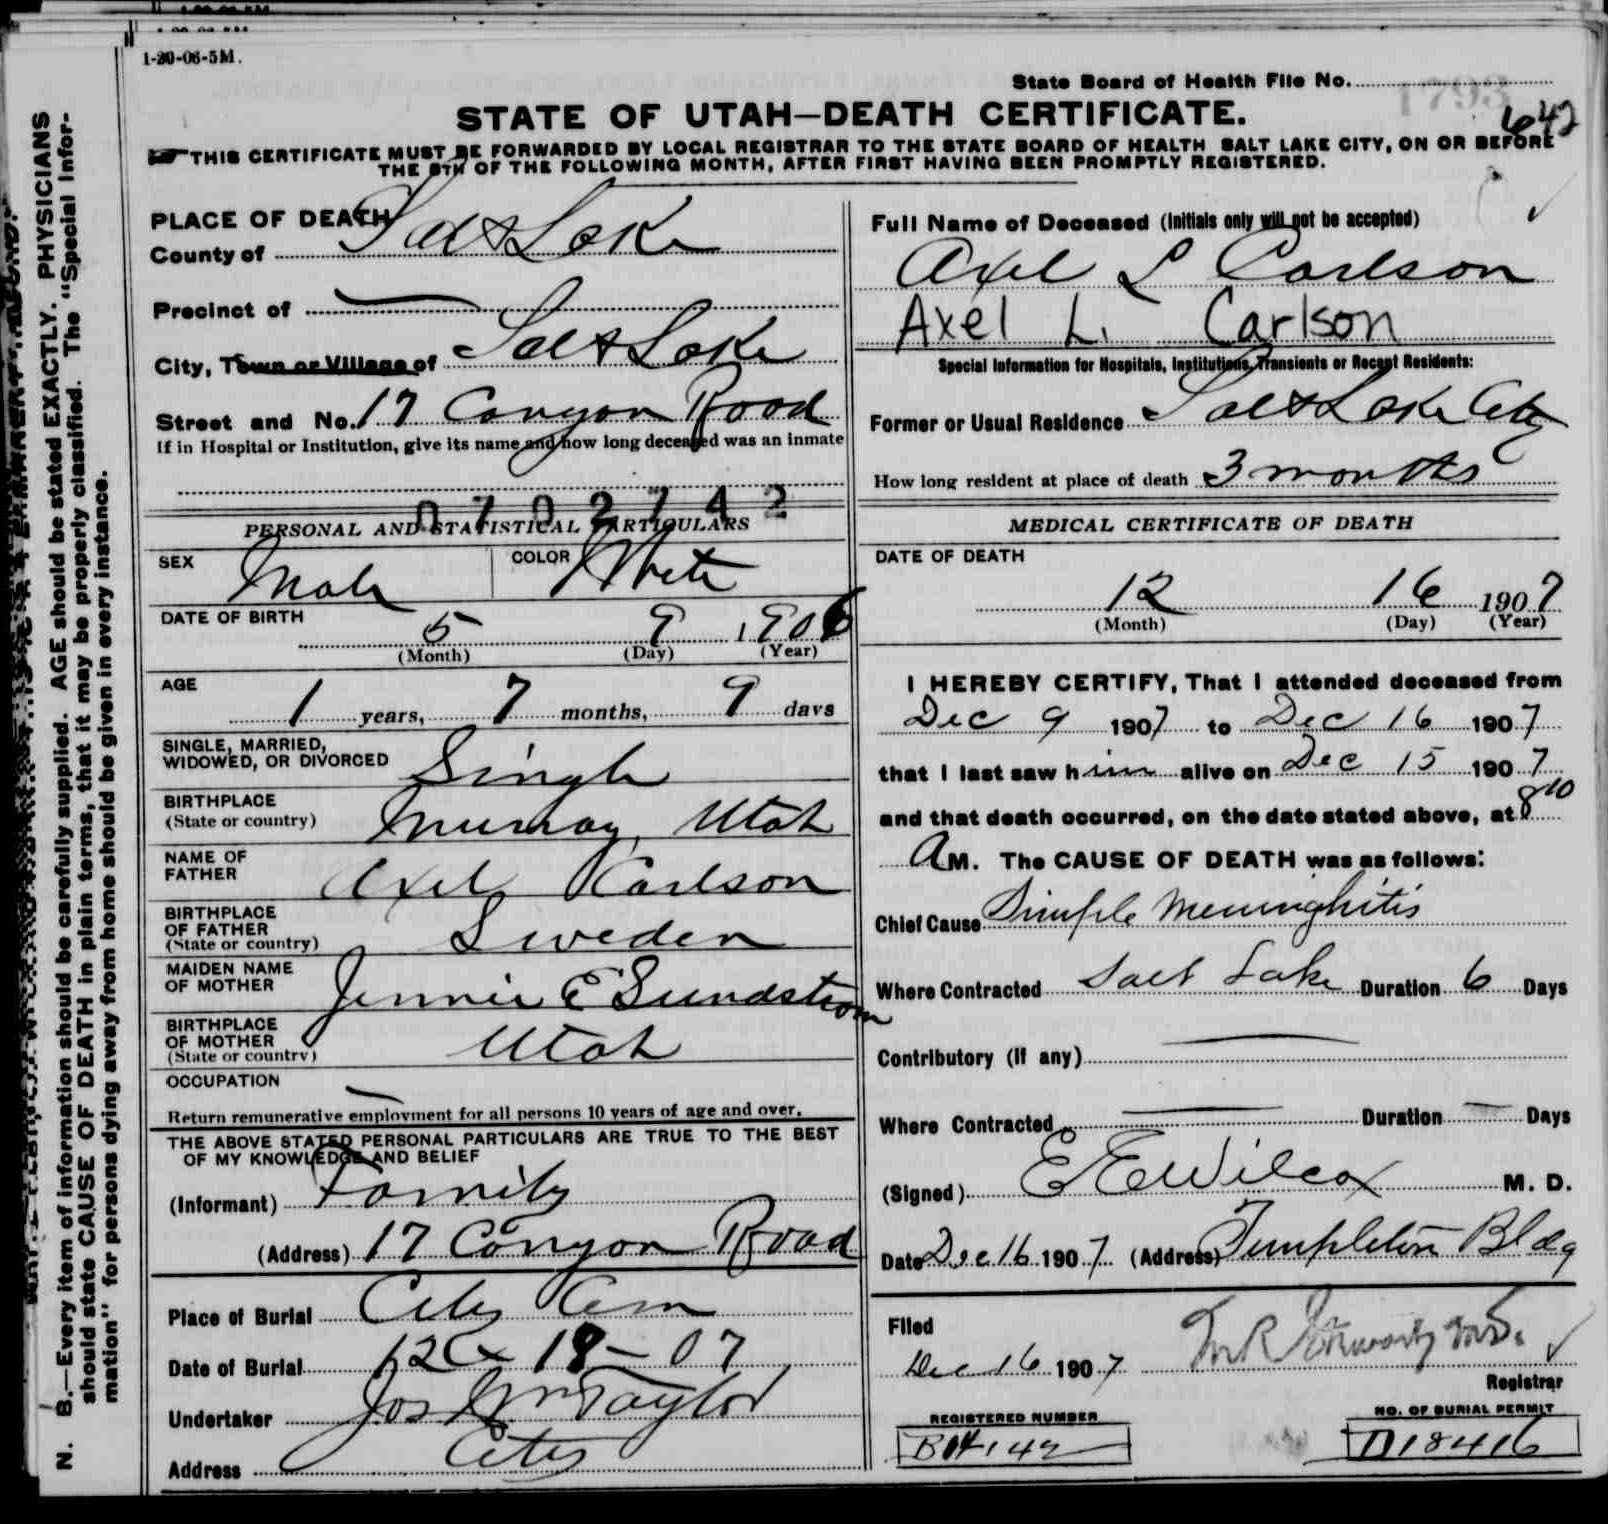 1-20-06-5M.
State Board of Health File No.
1793
642
STATE OF UTAH—DEATH CERTIFICATE.
THIS CERTIFICATE MUST BE FORWARDED BY LOCAL REGISTRAR TO THE STATE BOARD OF HEALTH SALT LAKE CITY, ON OR BEFORE
THE 5TH OF THE FOLLOWING MONTH, AFTER FIRST HAVING BEEN PROMPTLY REGISTERED.
PLACE OF DEATH
County of Salt Lake
Precinct of —
City, Town or Village of Salt Lake
Street and No. 17 Canyon Road
If in Hospital or Institution, give its name and how long deceased was an inmate
0702742
PERSONAL AND STATISTICAL PARTICULARS
SEX Male COLOR White
DATE OF BIRTH
5 9 1906
(Month) (Day) (Year)
AGE
1 years, 7 months, 9 days
SINGLE, MARRIED,
WIDOWED, OR DIVORCED Single
BIRTHPLACE
(State or country) Murray, Utah
NAME OF
FATHER Axel Carlson
BIRTHPLACE
OF FATHER
(State or country) Sweden
MAIDEN NAME
OF MOTHER Jennie E Sundstrom
BIRTHPLACE
OF MOTHER
(State or country) Utah
OCCUPATION —
Return remunerative employment for all persons 10 years of age and over.
THE ABOVE STATED PERSONAL PARTICULARS ARE TRUE TO THE BEST
OF MY KNOWLEDGE AND BELIEF
(Informant) Family
(Address) 17 Canyon Road
Place of Burial City Cem
Date of Burial 12 18 - 07
Undertaker Jos Wm Taylor
Address City
Full Name of Deceased (Initials only will not be accepted)
Axel L Carlson
Axel L. Carlson
Special Information for Hospitals, Institutions, Transients or Recent Residents:
Former or Usual Residence Salt Lake City
How long resident at place of death 3 months
MEDICAL CERTIFICATE OF DEATH
DATE OF DEATH
12 16 1907
(Month) (Day) (Year)
I HEREBY CERTIFY, That I attended deceased from
Dec 9 1907 to Dec 16 1907
that I last saw him alive on Dec 15 1907
and that death occurred, on the date stated above, at 8 10
A M. The CAUSE OF DEATH was as follows:
Chief Cause Simple Meninghitis
Where Contracted Salt Lake Duration 6 Days
Contributory (if any) —
Where Contracted — Duration — Days
(Signed) E E Wilcox M. D.
Date Dec 16 1907 (Address) Templeton Bldg
Filed
Dec 16 1907
Registrar
REGISTERED NUMBER
NO. OF BURIAL PERMIT
D18416
N. B.—Every item of information should be carefully supplied. AGE should be stated EXACTLY. PHYSICIANS
should state CAUSE OF DEATH in plain terms, that it may be properly classified. The "Special Infor-
mation" for persons dying away from home should be given in every instance.